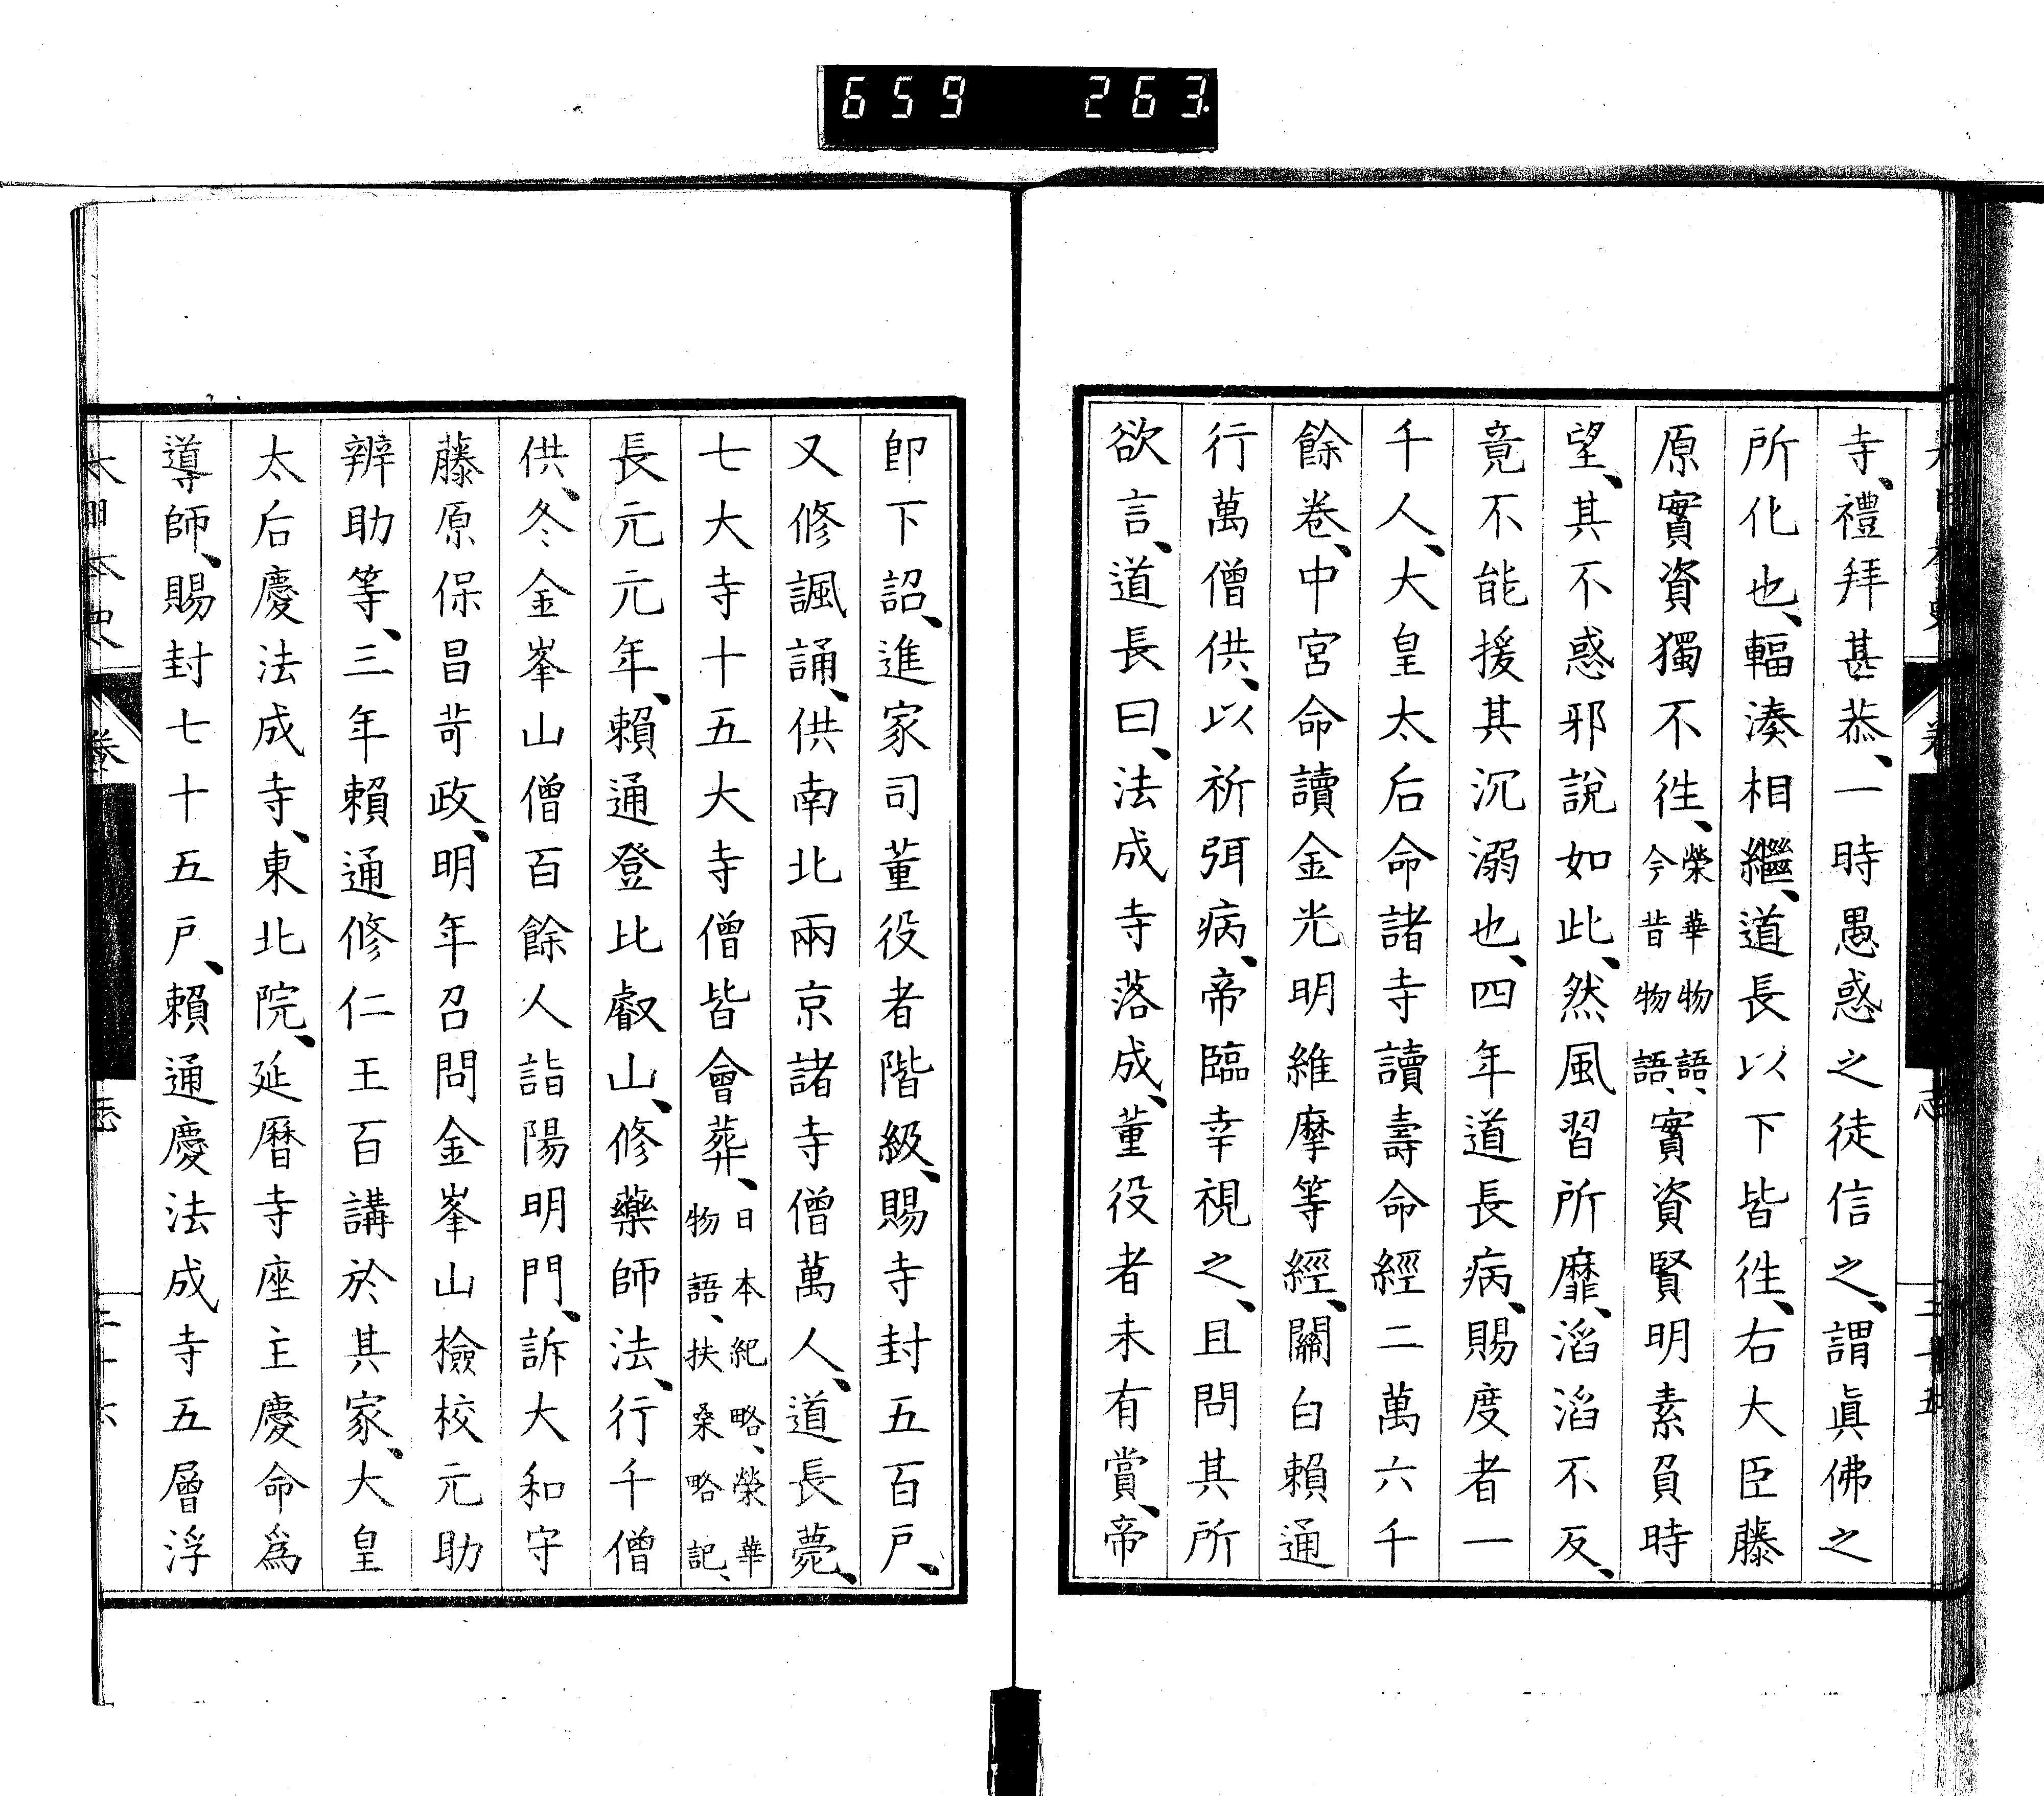 659 263
寺、禮拜甚恭、一時愚惑之徒信之、謂眞佛之
所化也、輻湊相繼、道長以下皆徃、右大臣藤
原實資獨不徃、榮華物語、今昔物語、實資賢明素負時
望、其不惑邪說如此、然風習所靡、滔滔不反、
竟不能援其沉溺也、四年道長病、賜度者一
千人、大皇太后命諸寺讀壽命經二萬六千
餘卷、中宮命讀金光明維摩等經、關白賴通
行萬僧供、以祈弭病、帝臨幸視之、且問其所
欲言、道長曰、法成寺落成、董役者未有賞、帝
卽下詔、進家司董役者階級、賜寺封五百戸、
又修諷誦、供南北兩京諸寺僧萬人、道長薨、
七大寺十五大寺僧皆會葬、日本紀略、榮華物語、扶桑略記、
長元元年、賴通登比叡山、修藥師法、行千僧
供、冬金峯山僧百餘人詣陽明門、訴大和守
藤原保昌苛政、明年召問金峯山檢校元助
辨助等、三年賴通修仁王百講於其家、大皇
太后慶法成寺、東北院、延曆寺座主慶命爲
導師、賜封七十五戸、賴通慶法成寺五層浮
大日本史 卷 志 二十六